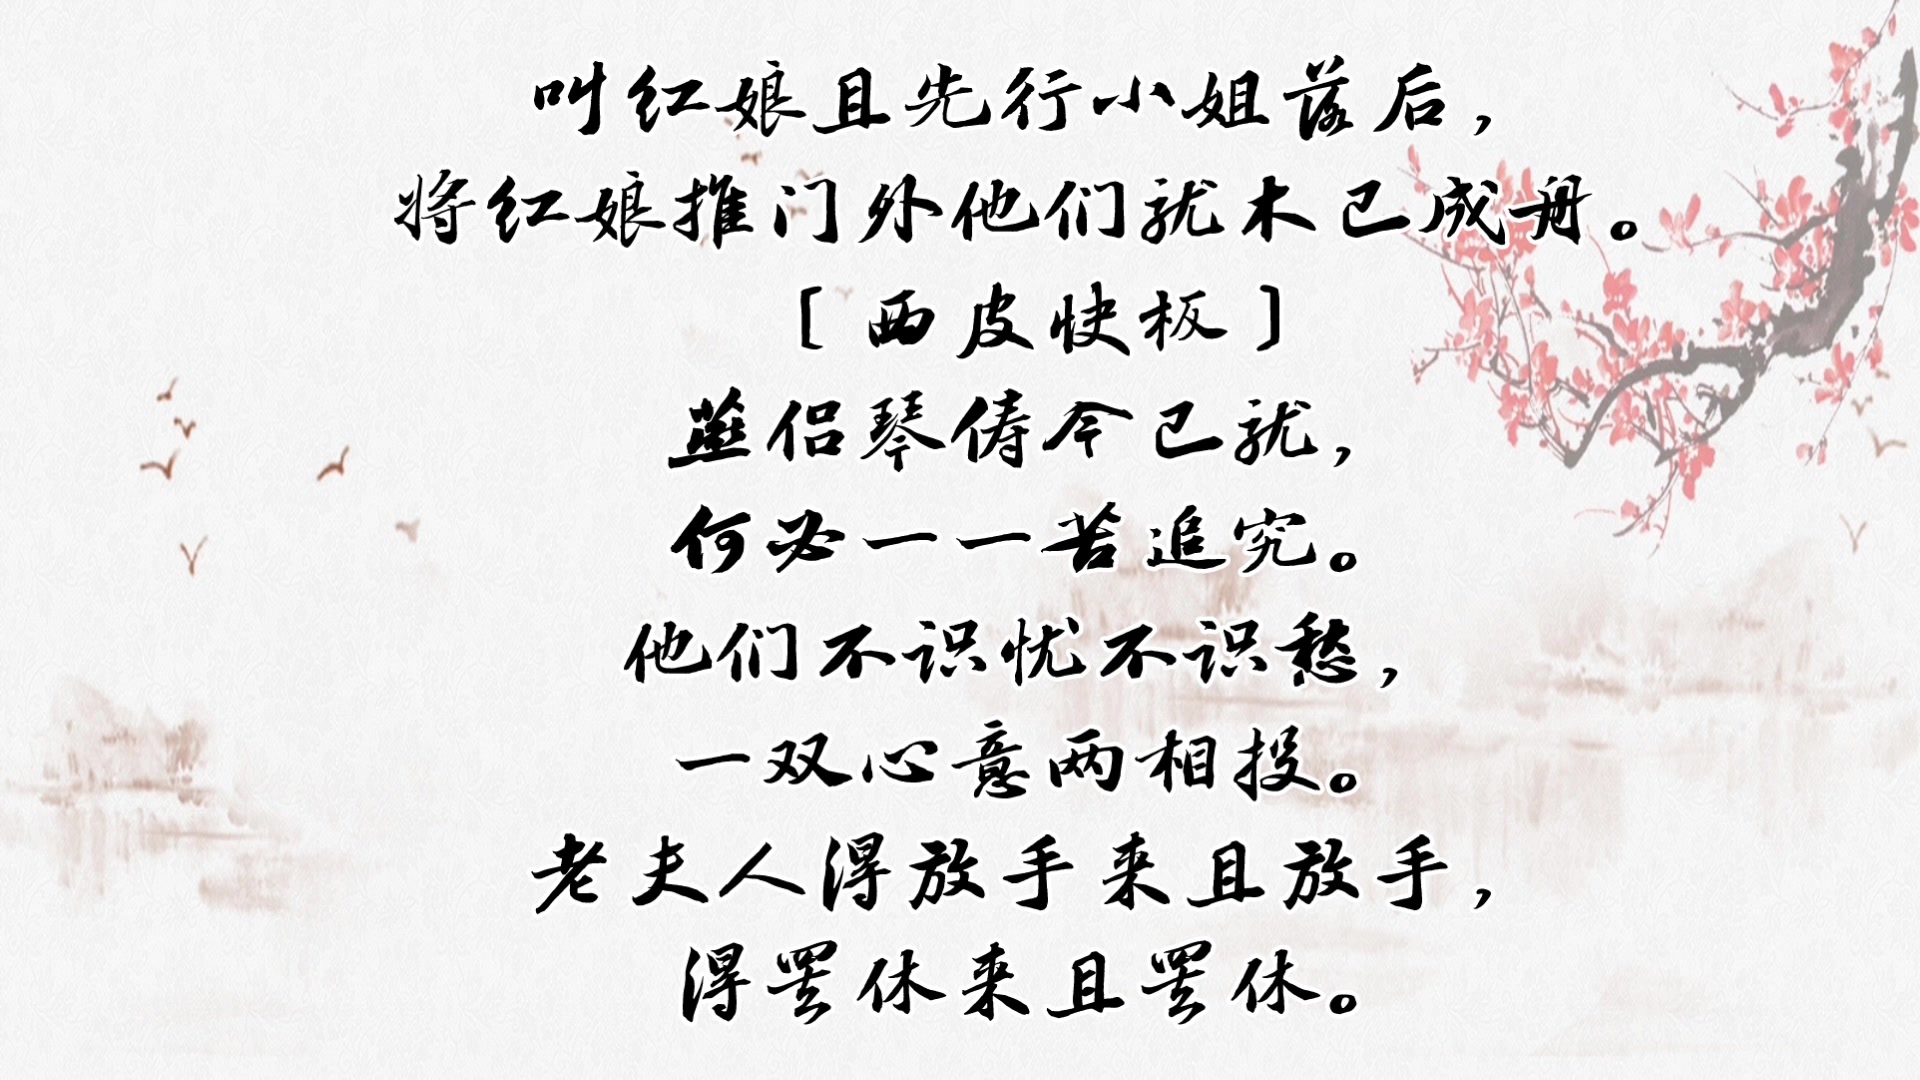 叫红娘且先行小姐落后，
将红娘推门外他们就木已成舟。
［西皮快板］
燕侣琴俦今已就，
何必一一苦追究。
他们不识忧不识愁，
一双心意两相投。
老夫人得放手来且放手，
得罢休来且罢休。